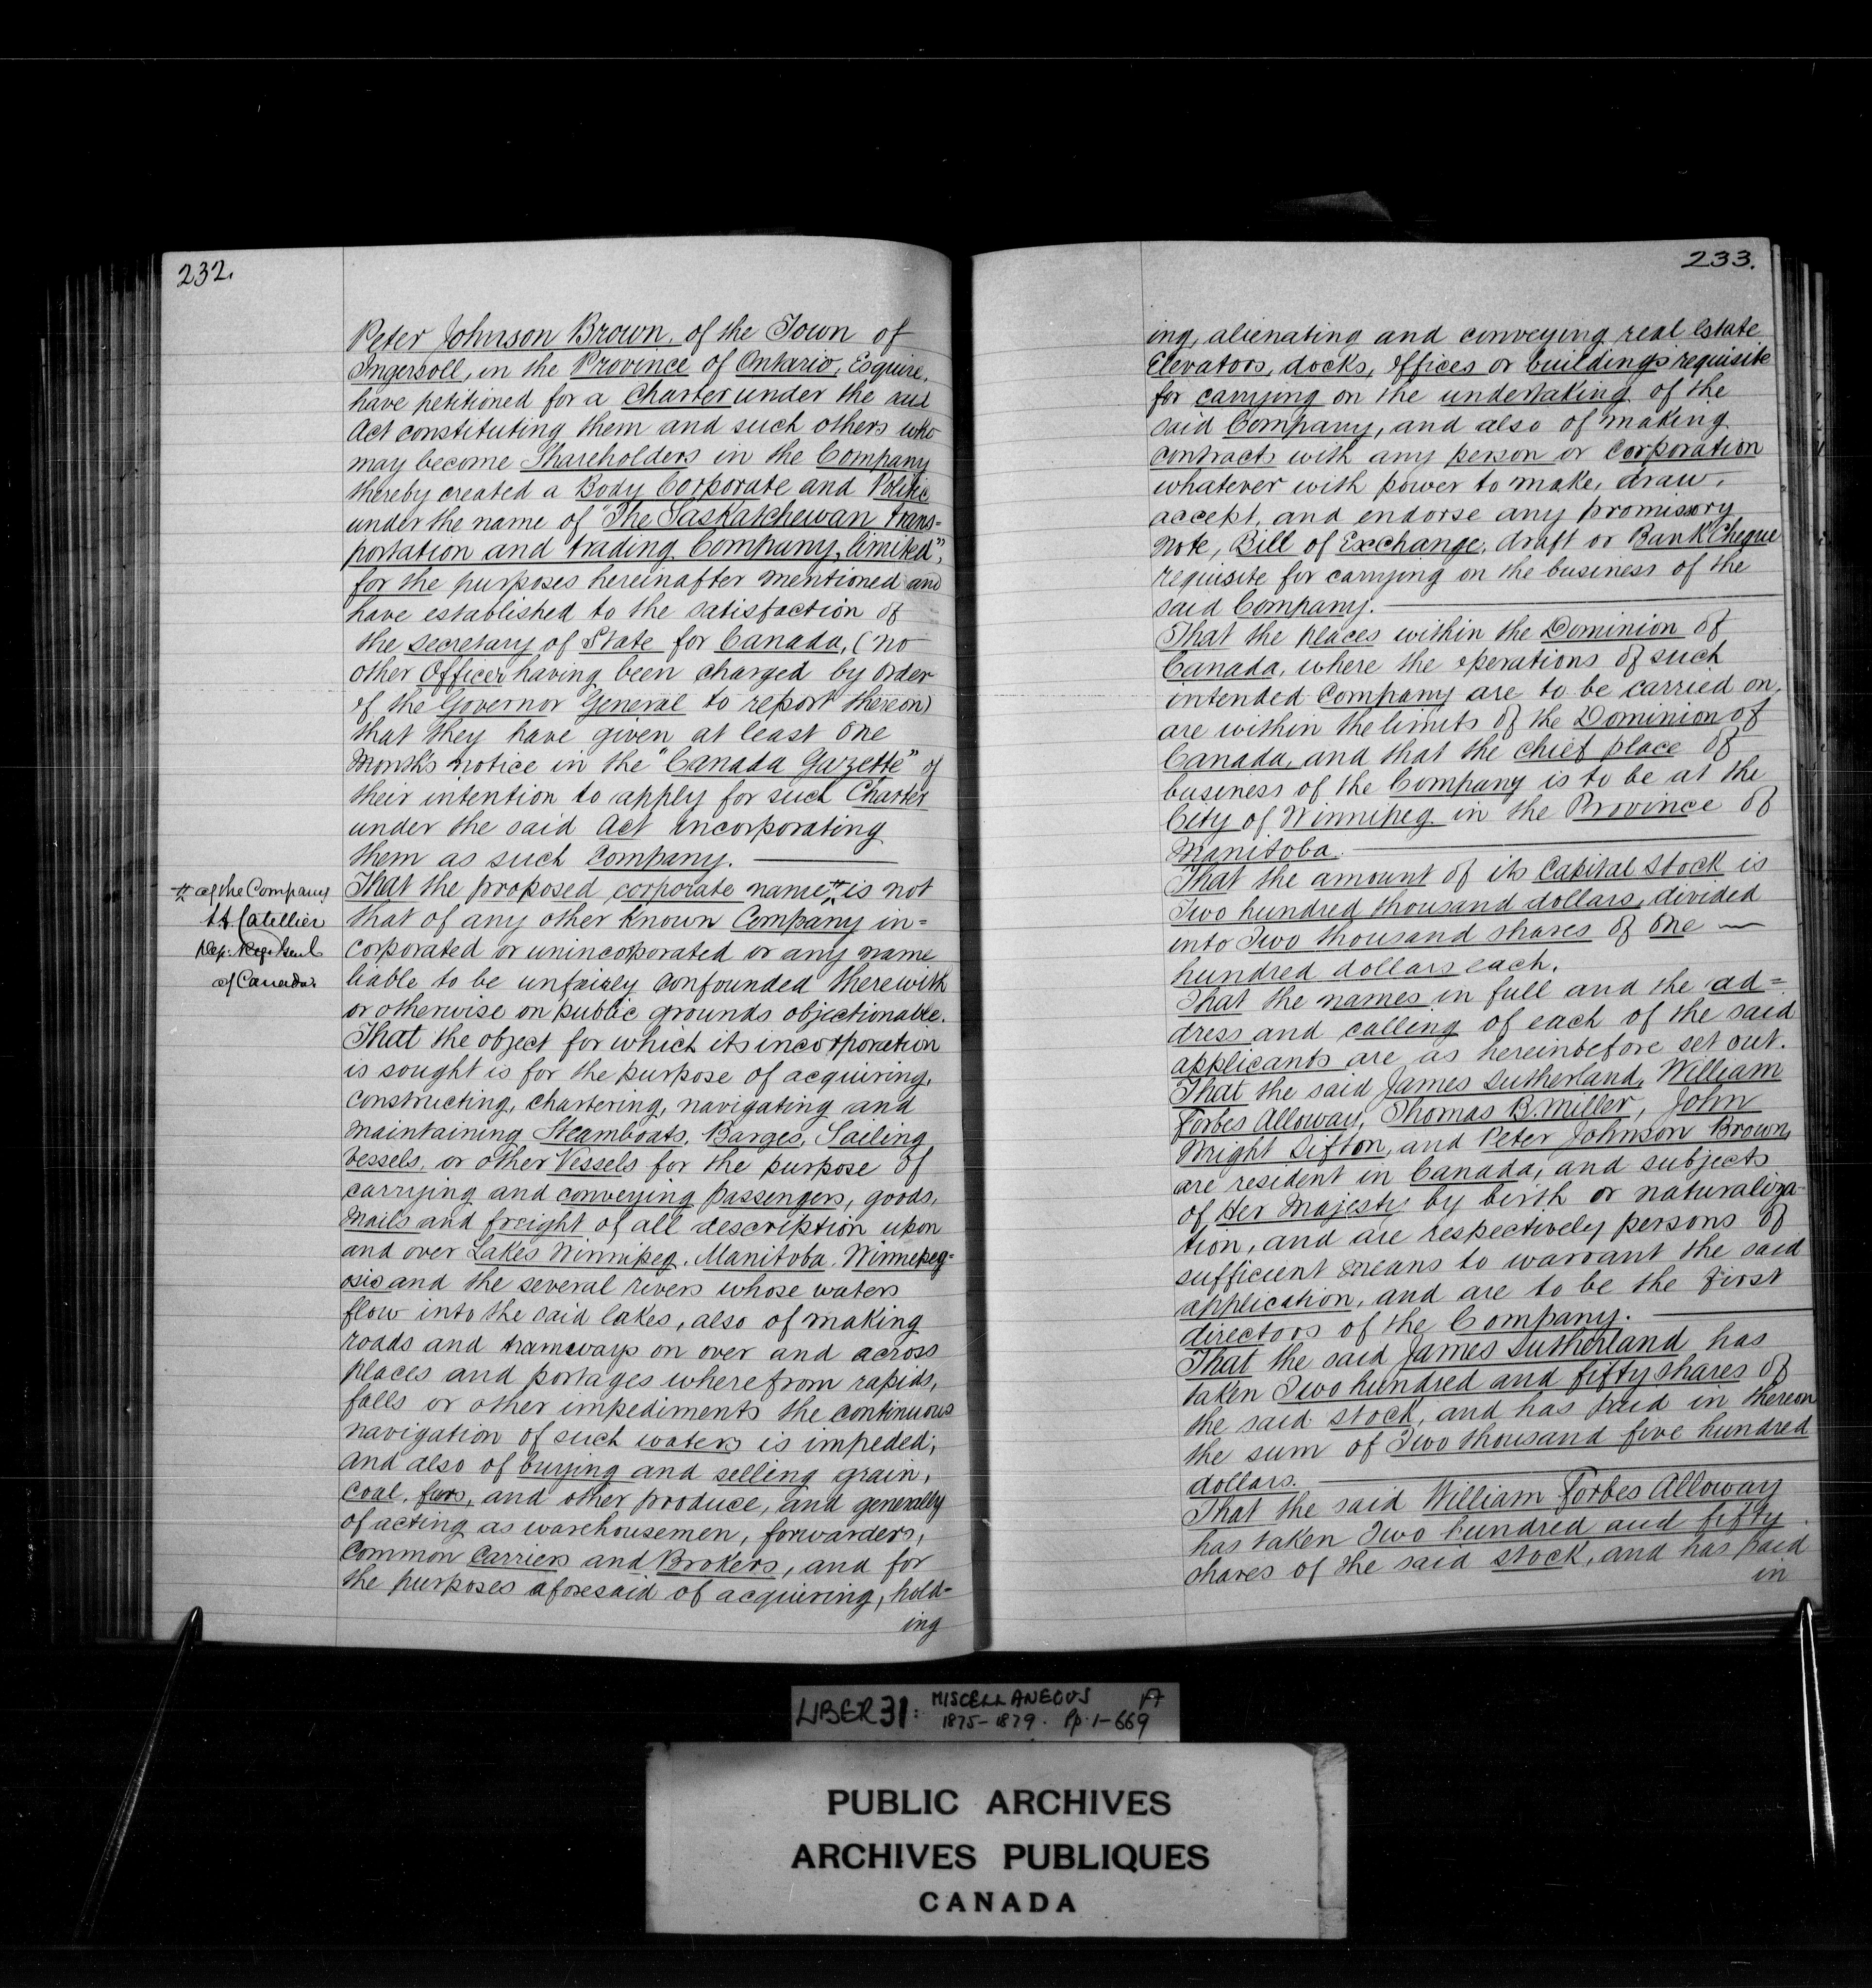 232.
Peter Johnson Brown, of the Town of
Ingersoll, in the Province of Ontario, Esquire,
have petitioned for a Charter under the said
Act constituting them and such others who
may become Shareholders in the Company
thereby created a Body Corporate and Politic
under the name of "The Saskatchewan trans=
portation and trading Company, limited",
for the purposes hereinafter mentioned and
have established to the satisfaction of
the Secretary of State for Canada, (no
other Officer having been charged by order
of the Governor General to report thereon)
that they have given at least one
Month's notice in the "Canada Gazette" of
their intention to apply for such Charter
under the said Act incorporating
them as such Company.
# of the Company
Catellier
Dep. Reg. Genl
of Canada
That the proposed corporate name # is not
that of any other known Company in=
corporated or unincorporated or any name
liable to be unfairly confounded therewith
or otherwise on public grounds objectionable.
That the object for which its incorporation
is sought is for the purpose of acquiring,
constructing, chartering, navigating and
maintaining Steamboats, Barges, Sailing
Vessels, or other Vessels for the purpose of
carrying and conveying passengers, goods,
Mails and freight of all description upon
and over Lakes Winnipeg, Manitoba, Winnepeg=
osis and the several rivers whose waters
flow into the said lakes, also of making
roads and tramways on over and across
places and portages where from rapids,
falls or other impediments the continuous
navigation of such waters is impeded;
and also of buying and selling grain,
Coal, furs, and other produce, and generally
of acting as warehousemen, forwarders,
Common Carriers and Brokers, and for
the purposes aforesaid of acquiring, hold=
ing
233.
ing, alienating and conveying real Estate
Elevators, docks, offices or buildings requisite
for carrying on the undertaking of the
said Company, and also of making
contracts with any person or Corporation
whatever with power to make, draw,
accept, and endorse any promissory
Note, Bill of Exchange, draft or Bank Cheque
requisite for carrying on the business of the
said Company.
That the places within the Dominion of
Canada, where the operations of such
intended Company are to be carried on,
are within the limits of the Dominion of
Canada, and that the chief place of
business of the Company is to be at the
City of Winnipeg in the Province of
Manitoba.
That the amount of its Capital Stock is
Two hundred thousand dollars, divided
into Two thousand shares of One
hundred dollars each.
That the names in full and the ad=
dress and calling of each of the said
applicants are as hereinbefore set out.
That the said James Sutherland, William
Forbes Alloway, Thomas B. Miller, John
Wright Sifton, and Peter Johnson Brown,
are resident in Canada, and subjects
of Her Majesty by birth or naturaliza-
tion, and are respectively persons of
sufficient means to warrant the said
application, and are to be the first
directors of the Company.
That the said James Sutherland has
taken Two hundred and fifty shares of
the said stock, and has paid in thereon
the sum of Two thousand five hundred
dollars.
That the said William Forbes Alloway
has taken Two hundred and fifty
shares of the said stock, and has paid
in
LIBER 31: MISCELLANEOUS
1875-1879. Pp. 1-669
PUBLIC ARCHIVES
ARCHIVES PUBLIQUES
CANADA